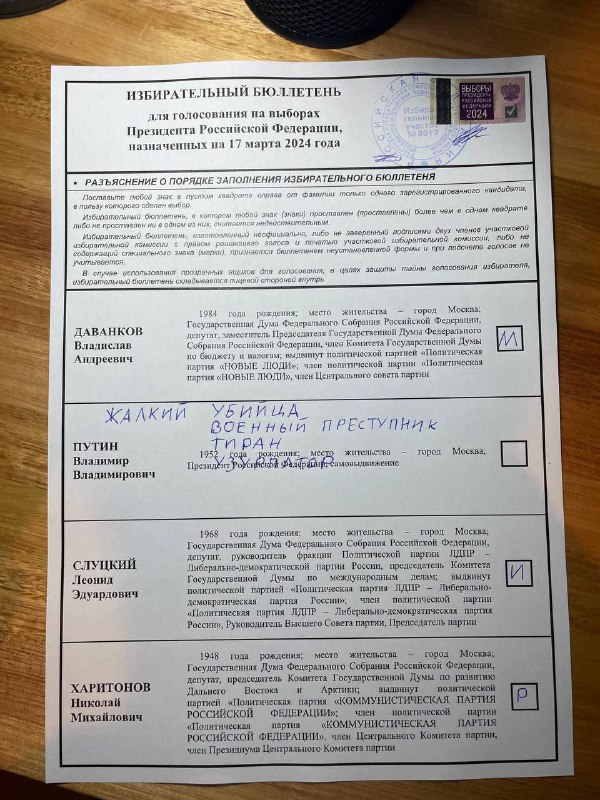 ИЗБИРАТЕЛЬНЫЙ БЮЛЛЕТЕНЬ
для голосования на выборах
Президента Российской Федерации,
назначенных на 17 марта 2024 года
Избира-
тельный
участок
№ 8010
ВЫБОРЫ
ПРЕЗИДЕНТА
РОССИЙСКОЙ
ФЕДЕРАЦИИ
2024
• РАЗЪЯСНЕНИЕ О ПОРЯДКЕ ЗАПОЛНЕНИЯ ИЗБИРАТЕЛЬНОГО БЮЛЛЕТЕНЯ
Поставьте любой знак в пустом квадрате справа от фамилии только одного зарегистрированного кандидата,
в пользу которого сделан выбор.
Избирательный бюллетень, в котором любой знак (знаки) проставлен (проставлены) более чем в одном квадрате
либо не проставлен ни в одном из них, считается недействительным.
Избирательный бюллетень, изготовленный неофициально, либо не заверенный подписями двух членов участковой
избирательной комиссии с правом решающего голоса и печатью участковой избирательной комиссии, либо не
содержащий специального знака (марки), признается бюллетенем неустановленной формы и при подсчете голосов не
учитывается.
В случае использования прозрачных ящиков для голосования, в целях защиты тайны голосования избирателя,
избирательный бюллетень складывается лицевой стороной внутрь
ДАВАНКОВ
Владислав
Андреевич
1984 года рождения; место жительства – город Москва;
Государственная Дума Федерального Собрания Российской Федерации,
депутат, заместитель Председателя Государственной Думы Федерального
Собрания Российской Федерации, член Комитета Государственной Думы
по бюджету и налогам; выдвинут политической партией «Политическая
партия «НОВЫЕ ЛЮДИ»; член политической партии «Политическая
партия «НОВЫЕ ЛЮДИ», член Центрального совета партии
М
ЖАЛКИЙ УБИЙЦА
ВОЕННЫЙ ПРЕСТУПНИК
ТИРАН
УЗУРПАТОР
ПУТИН
Владимир
Владимирович
1952 года рождения; место жительства – город Москва;
Президент Российской Федерации; самовыдвижение
СЛУЦКИЙ
Леонид
Эдуардович
1968 года рождения; место жительства – город Москва;
Государственная Дума Федерального Собрания Российской Федерации,
депутат, руководитель фракции Политической партии ЛДПР –
Либерально-демократической партии России, председатель Комитета
Государственной Думы по международным делам; выдвинут
политической партией «Политическая партия ЛДПР – Либерально-
демократическая партия России»; член политической партии
«Политическая партия ЛДПР – Либерально-демократическая партия
России», Руководитель Высшего Совета партии, Председатель партии
И
ХАРИТОНОВ
Николай
Михайлович
1948 года рождения; место жительства – город Москва;
Государственная Дума Федерального Собрания Российской Федерации,
депутат, председатель Комитета Государственной Думы по развитию
Дальнего Востока и Арктики; выдвинут политической
партией «Политическая партия «КОММУНИСТИЧЕСКАЯ ПАРТИЯ
РОССИЙСКОЙ ФЕДЕРАЦИИ»; член политической партии
«Политическая партия «КОММУНИСТИЧЕСКАЯ ПАРТИЯ
РОССИЙСКОЙ ФЕДЕРАЦИИ», член Центрального Комитета партии,
член Президиума Центрального Комитета партии
Р